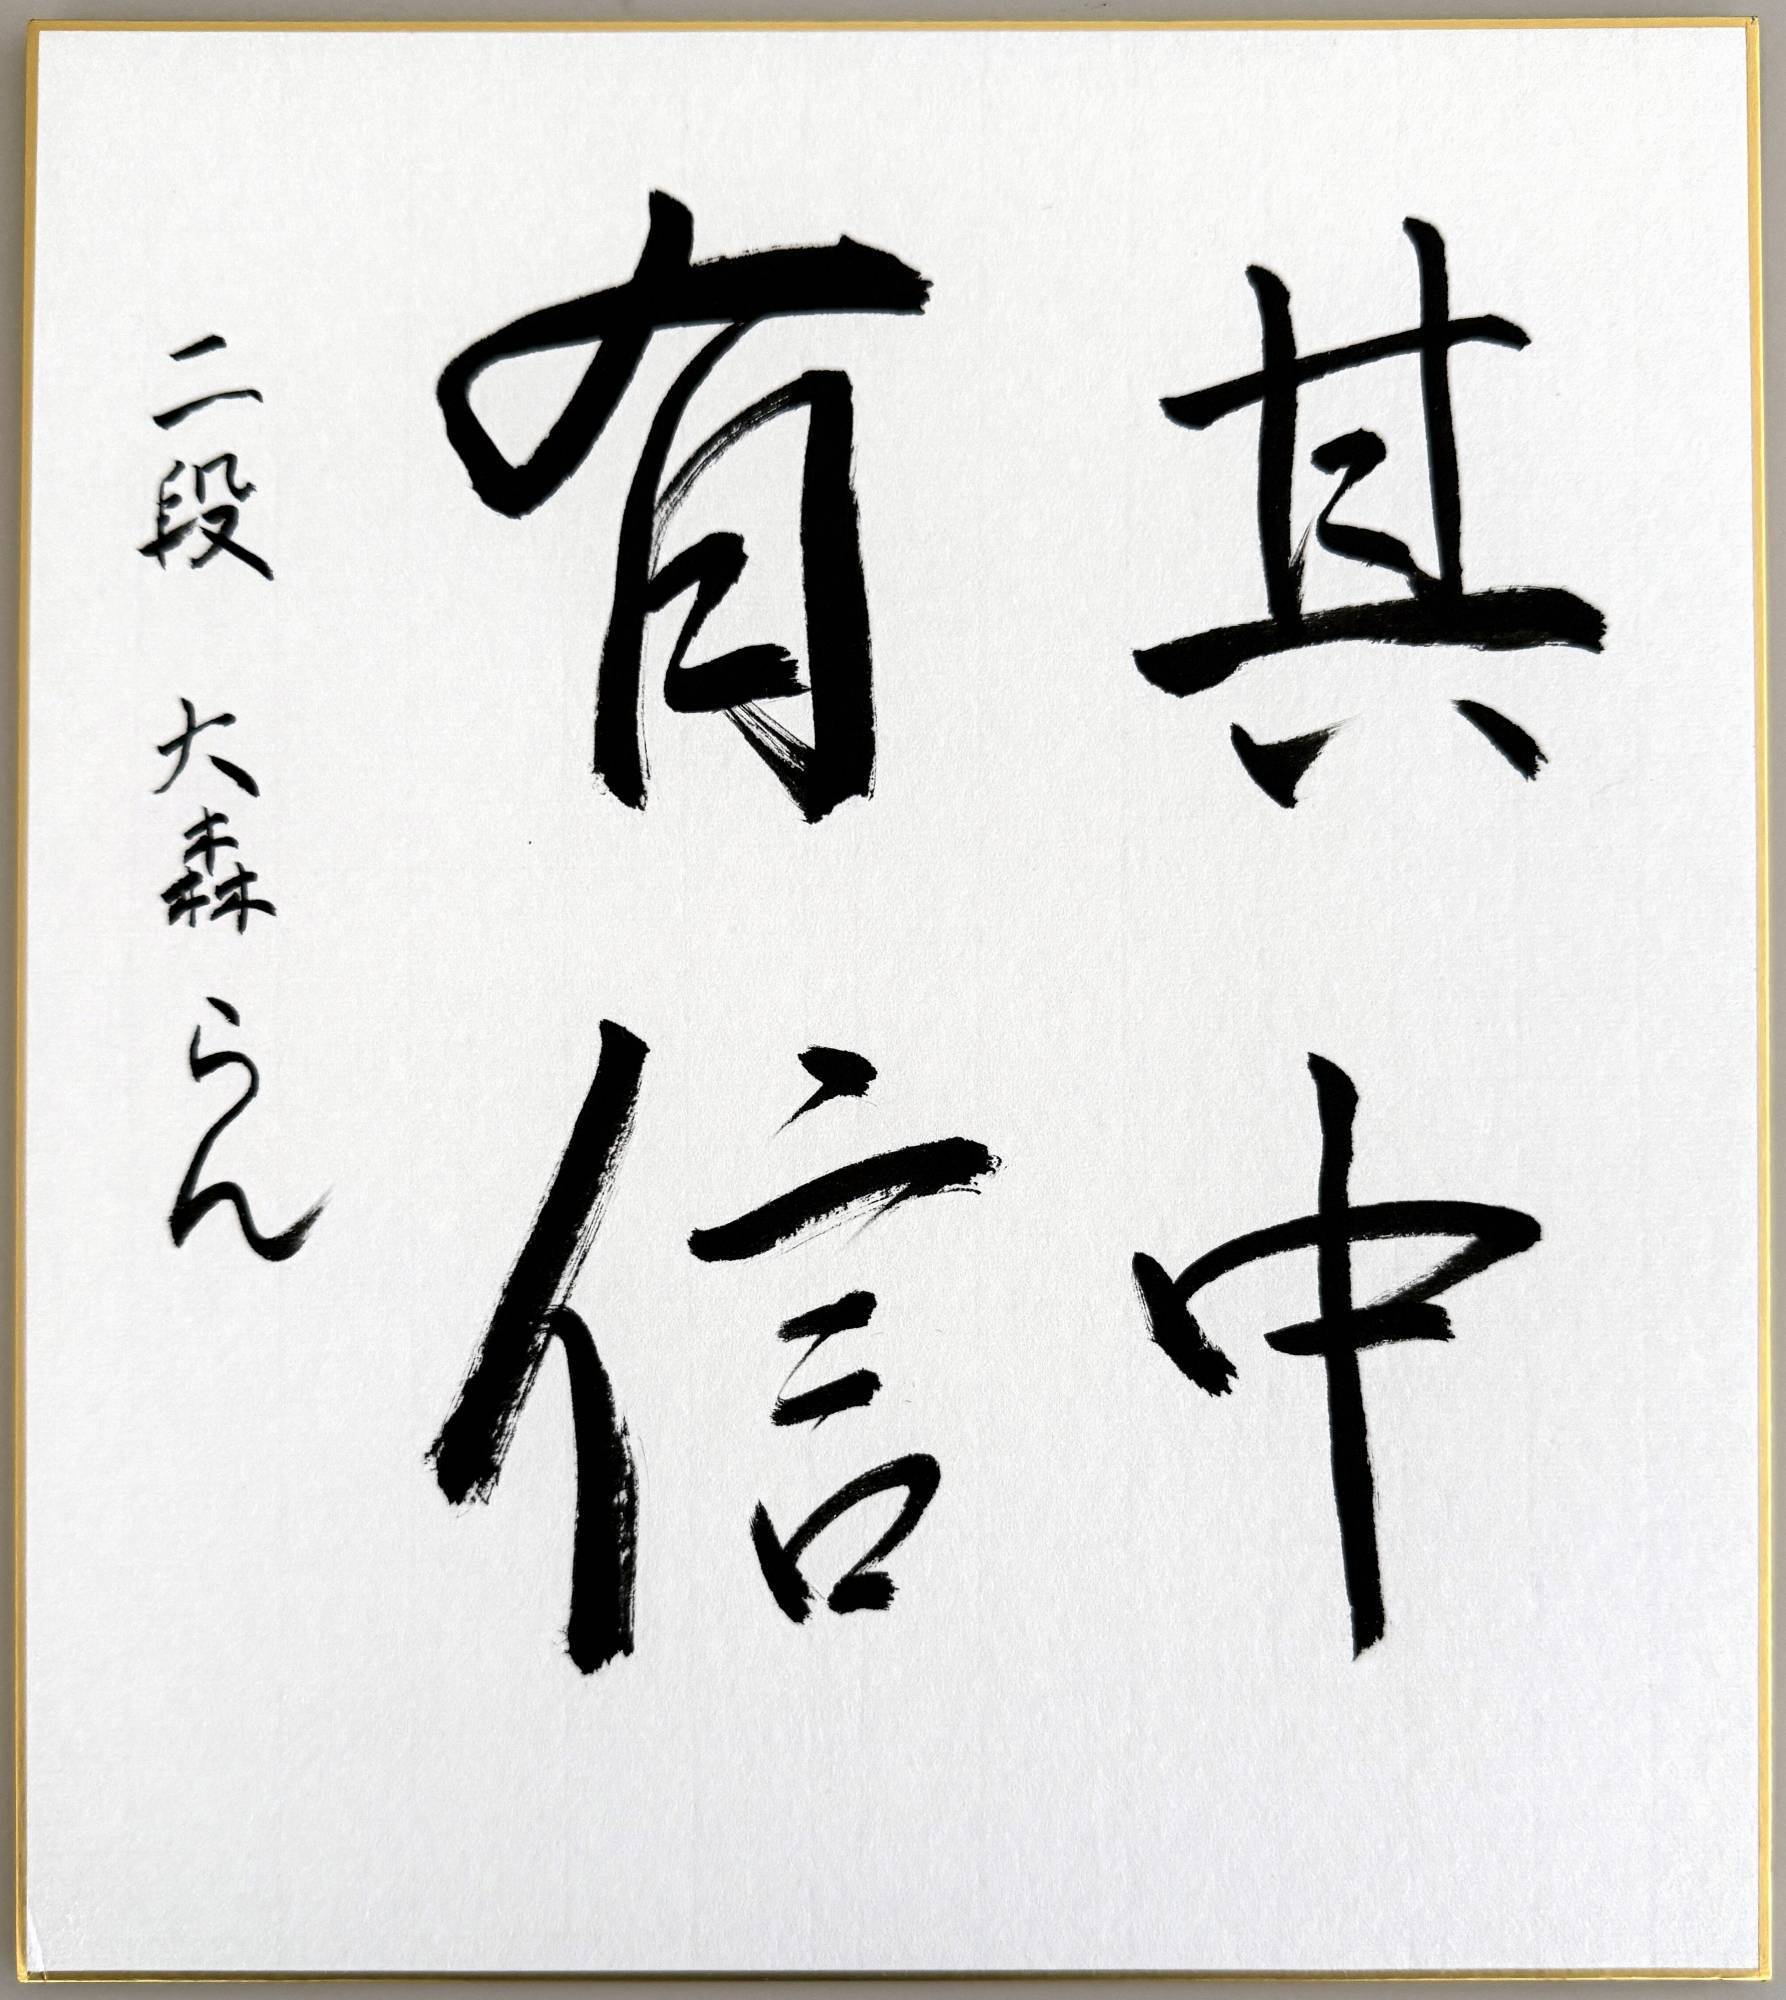 其中
有信
二段 大森らん